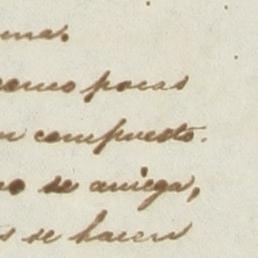 ma.
como pocas
n compuesto.
no se aniega,
s se hacen